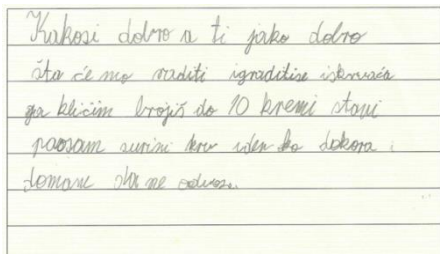 Kakosi dobro a ti jako dobro
šta će mo raditi igraditise iskrvača
ga kličim brojiš do 10 kreni stani
paosam kru iden ko dokora
domane